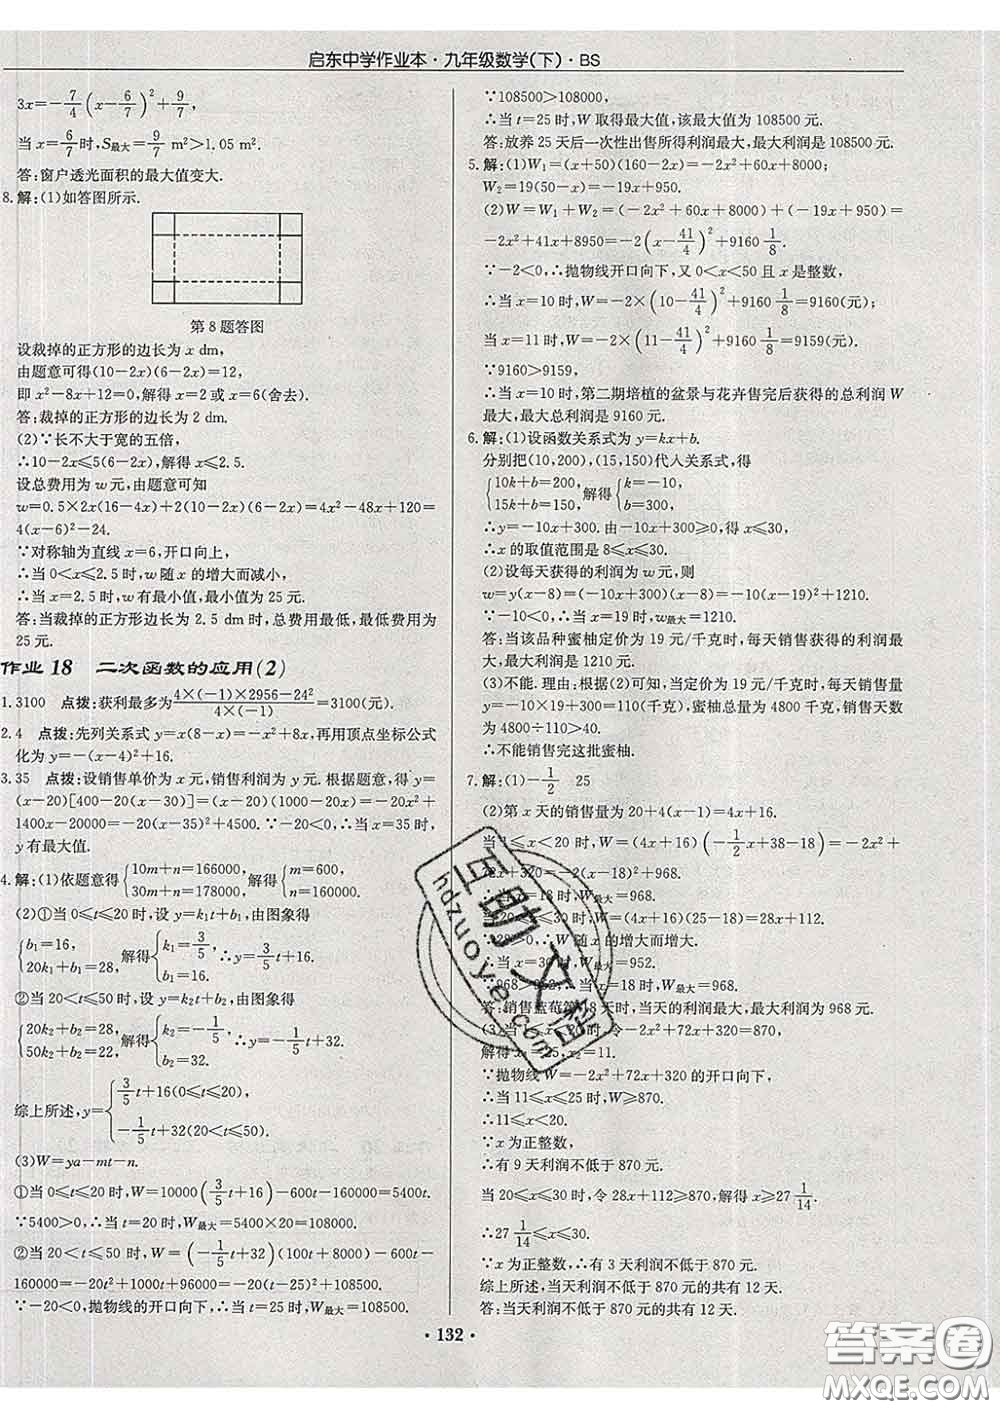 启东中学作业本·九年级数学(下)·BS
3x=-7/4(x-6/7)²+9/7,
当 x=6/7 时,S最大=9/7 m²>1.05 m².
答:窗户透光面积的最大值变大.
8.解:(1)如答图所示.
第 8 题答图
设裁掉的正方形的边长为 x dm,
由题意可得(10-2x)(6-2x)=12,
即 x²-8x+12=0,解得 x=2 或 x=6(舍去).
答:裁掉的正方形的边长为 2 dm.
(2)∵长不大于宽的五倍,
∴10-2x≤5(6-2x),解得 x≤2.5.
设总费用为 w 元,由题意可知
w=0.5×2x(16-4x)+2(10-2x)(6-2x)=4x²-48x+120=
4(x-6)²-24.
∵对称轴为直线 x=6,开口向上,
∴当 0<x≤2.5 时,w 随 x 的增大而减小,
∴当 x=2.5 时,w 有最小值,最小值为 25 元.
答:当裁掉的正方形边长为 2.5 dm 时,总费用最低,最低费用为
25 元.
作业 18 二次函数的应用(2)
1.3100 点拨:获利最多为 4×(-1)×2956-24²/4×(-1)=3100(元).
2.4 点拨:先列关系式 y=x(8-x)=-x²+8x,再用顶点坐标公式
化为 y=-(x-4)²+16.
3.35 点拨:设销售单价为 x 元,销售利润为 y 元.根据题意,得 y=
(x-20)[400-20(x-30)]=(x-20)(1000-20x)=-20x²+
1400x-20000=-20(x-35)²+4500.∵-20<0,∴当 x=35 时,
y 有最大值.
4.解:(1)依题意得{10m+n=166000, 30m+n=178000, 解得{m=600, n=160000.
(2)①当 0≤t≤20 时,设 y=k₁t+b₁,由图象得
{b₁=16, 20k₁+b₁=28, 解得{k₁=3/5, b₁=16. ∴y=3/5t+16.
②当 20<t≤50 时,设 y=k₂t+b₂,由图象得
{20k₂+b₂=28, 50k₂+b₂=22, 解得{k₂=-1/5, b₂=32. ∴y=-1/5t+32.
综上所述,y={3/5t+16(0≤t≤20), -1/5t+32(20<t≤50).
(3)W=ya-mt-n.
①当 0≤t≤20 时,W=10000(3/5t+16)-600t-160000=5400t.
∵5400>0,∴当 t=20 时,W最大=5400×20=108000.
②当 20<t≤50 时,W=(-1/5t+32)(100t+8000)-600t-
160000=-20t²+1000t+96000=-20(t-25)²+108500.
∵-20<0,抛物线的开口向下,∴当 t=25 时,W最大=108500.
∵108500>108000,
∴当 t=25 时,W 取得最大值,该最大值为 108500 元.
答:放养 25 天后一次性出售所得利润最大,最大利润是 108500元.
5.解:(1)W₁=(x+50)(160-2x)=-2x²+60x+8000;
W₂=19(50-x)=-19x+950.
(2)W=W₁+W₂=(-2x²+60x+8000)+(-19x+950)=
-2x²+41x+8950=-2(x-41/4)²+9160 1/8.
∵-2<0,∴抛物线开口向下,又 0<x<50 且 x 是整数,
∴当 x=10 时,W=-2×(10-41/4)²+9160 1/8=9160(元);
当 x=11 时,W=-2×(11-41/4)²+9160 1/8=9159(元).
∵9160>9159,
∴当 x=10 时,第二期培植的盆景与花卉售完后获得的总利润 W
最大,最大总利润是 9160 元.
6.解:(1)设函数关系式为 y=kx+b.
分别把(10,200),(15,150)代入关系式,得
{10k+b=200, 15k+b=150, 解得{k=-10, b=300,
∴y=-10x+300.由-10x+300≥0,得 x≤30.
∴x 的取值范围是 8≤x≤30.
(2)设每天获得的利润为 w元,则
w=y(x-8)=(-10x+300)(x-8)=-10(x-19)²+1210.
∵-10<0,∴当 x=19 时,w最大=1210.
答:当该品种蜜柚定价为 19 元/千克时,每天销售获得的利润最
大,最大利润是 1210 元.
(3)不能.理由:根据(2)可知,当定价为 19 元/千克时,每天销售量
y=-10×19+300=110(千克),蜜柚总量为 4800 千克,销售天数
为 4800÷110>40.
∴不能销售完这批蜜柚.
7.解:(1)-1/2 25
(2)第 x 天的销售量为 20+4(x-1)=4x+16.
当 1≤x<20 时,W=(4x+16)(-1/2x+38-18)=-2x²+
72x+320=-2(x-18)²+968.
∴当 x=18 时,W最大=968.
当 20≤x≤30 时,W=(4x+16)(25-18)=28x+112.
∵28>0,∴W 随 x 的增大而增大.
∴当 x=30 时,W最大=952.
∵968>952,∴当 x=18 时,W最大=968.
答:销售蓝莓第 18 天时,当天的利润最大,最大利润为 968 元.
(3)当 1≤x<20时,令-2x²+72x+320=870,
解得 x₁=25,x₂=11.
∵抛物线 W=-2x²+72x+320 的开口向下,
∴当 11≤x≤25 时,W≥870.
∴11≤x<20.
∵x 为正整数,
∴有 9 天利润不低于 870 元.
当 20≤x≤30 时,令 28x+112≥870,解得 x≥27 1/14.
∴27 1/14≤x≤30.
∵x 为正整数,∴有 3 天利润不低于 870 元.
综上所述,当天利润不低于 870 元的共有 12 天.
答:当天利润不低于 870 元的共有 12 天.
·132·
正助文档
hdzuoye.com
答案卷
MXQE.COM